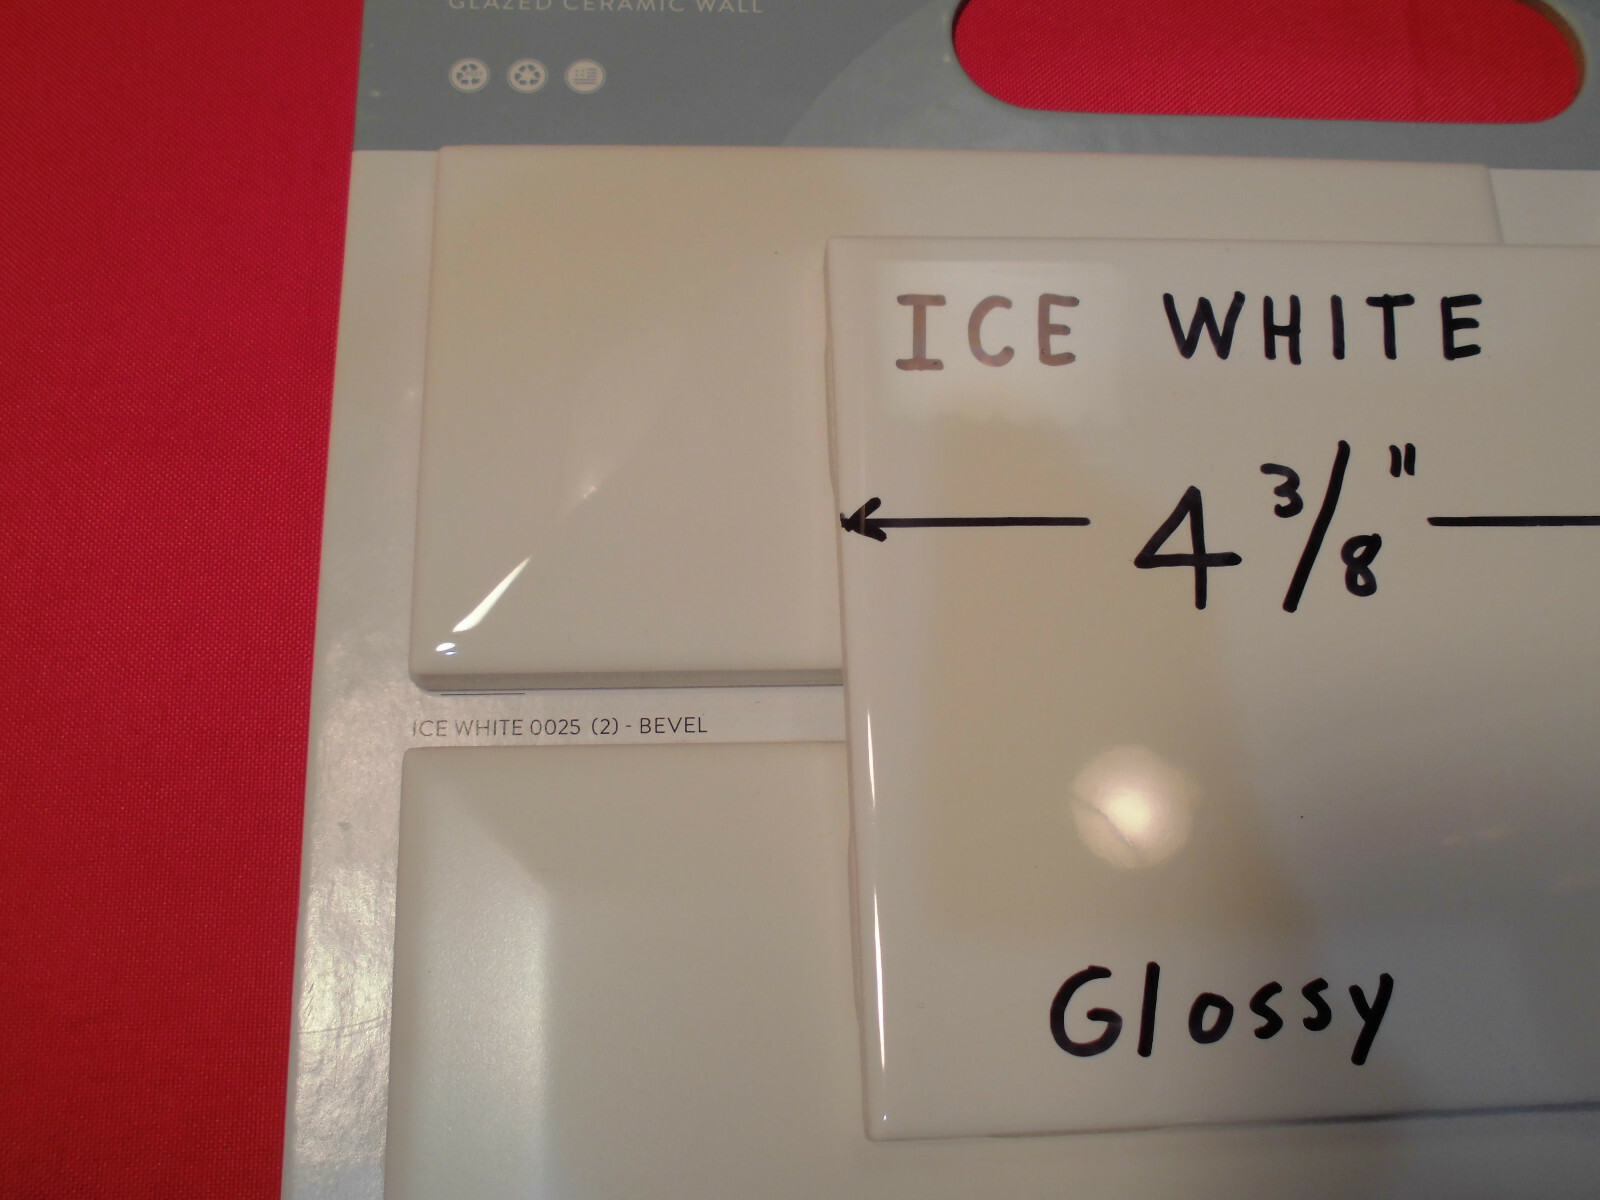 GLAZED CERAMIC WALL
ICE WHITE
4 3/8"
ICE WHITE 0025 (2) - BEVEL
Glossy